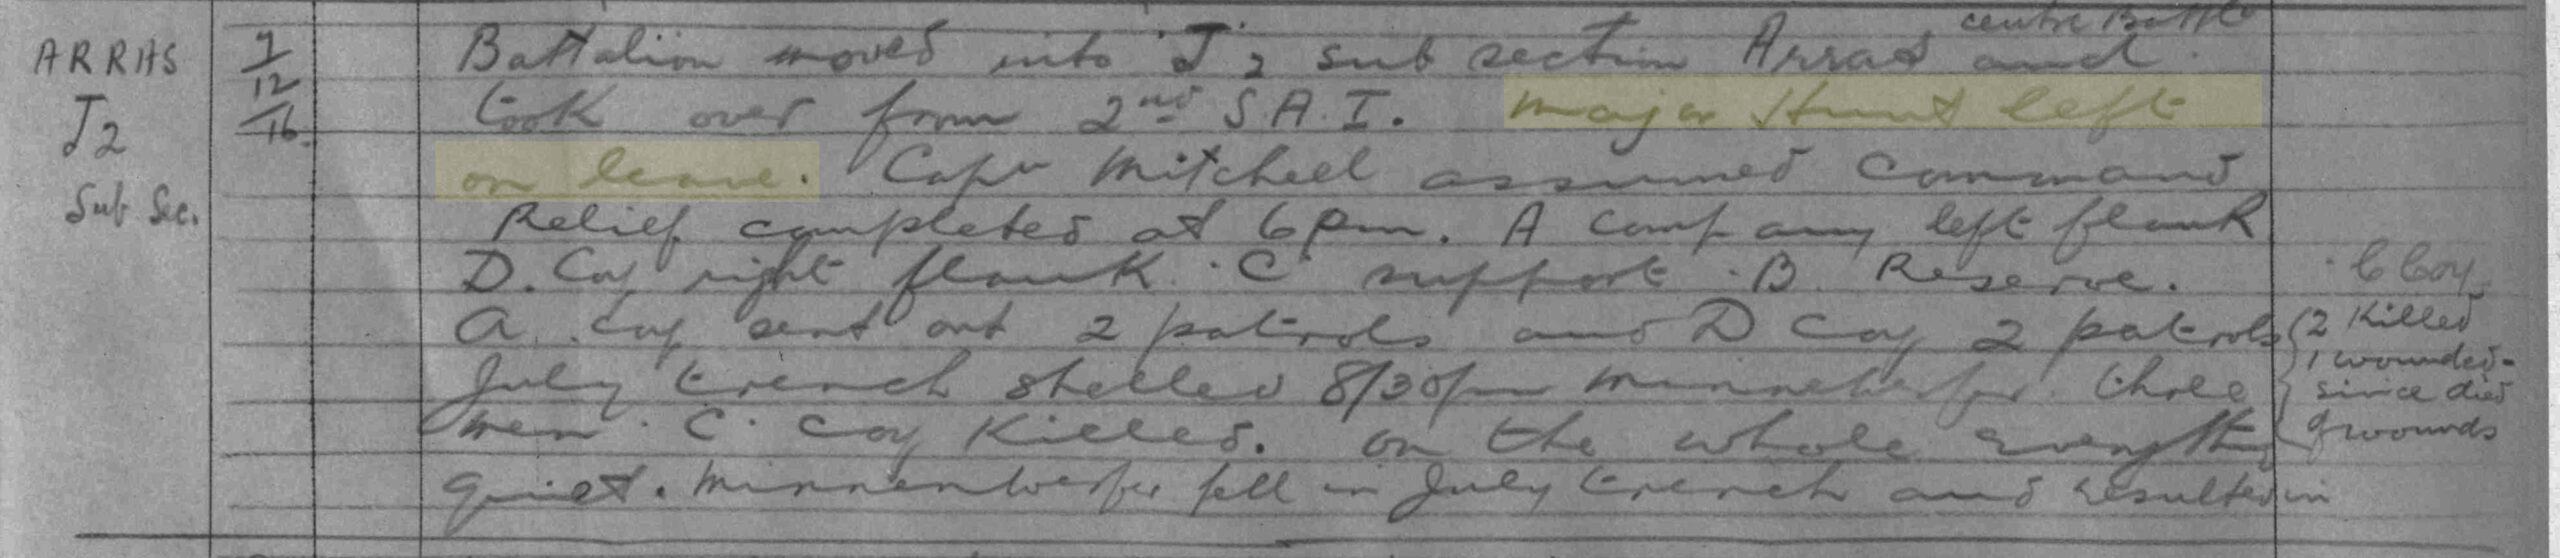 ARRAS
J2
Sub Sec.
7/12/16.
centre Battle
Battalion moved into J2 sub section Arras and
took over from 2nd S.A.I. Major Hunt left
on leave. Capt Mitchell assumed command
Relief completed at 6 pm. A company left flank
D. Coy right flank. C support. B. Reserve.
A. Coy sent out 2 patrols and D Coy 2 patrols
July trench shelled 8/30 pm three
men C. Coy killed. on the whole everything
quiet. Minnenwerfer fell in July trench and resulted in
C Coy
2 killed
1 wounded -
since died
of wounds